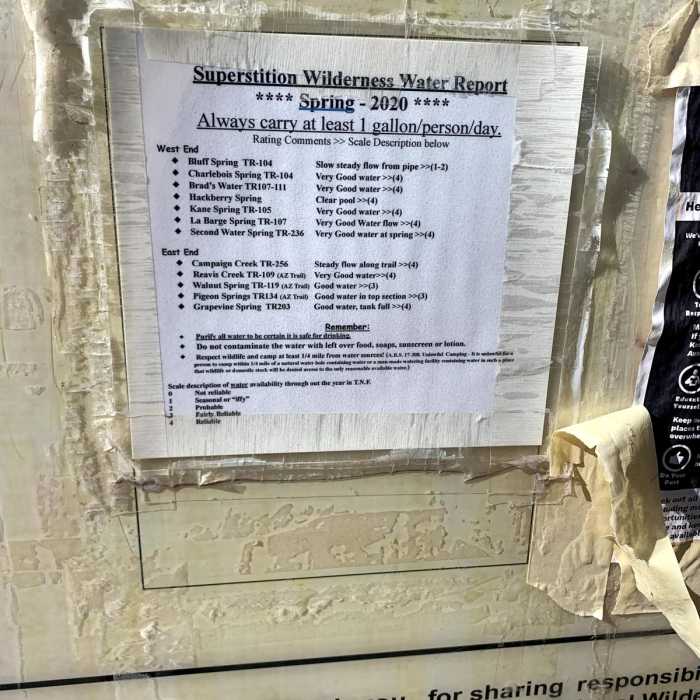 Superstition Wilderness Water Report
**** Spring - 2020 ****
Always carry at least 1 gallon/person/day.
Rating Comments >> Scale Description below
West End
◆ Bluff Spring TR-104 Slow steady flow from pipe >>(1-2)
◆ Charlebois Spring TR-104 Very Good water >>(4)
◆ Brad's Water TR107-111 Very Good water >>(4)
◆ Hackberry Spring Clear pool >>(4)
◆ Kane Spring TR-105 Very Good water >>(4)
◆ La Barge Spring TR-107 Very Good Water flow >>(4)
◆ Second Water Spring TR-236 Very Good water at spring >>(4)
East End
◆ Campaign Creek TR-256 Steady flow along trail >>(4)
◆ Reavis Creek TR-109 (AZ Trail) Very Good water>>(4)
◆ Walnut Spring TR-119 (AZ Trail) Good water >>(3)
◆ Pigeon Springs TR134 (AZ Trail) Good water in top section >>(3)
◆ Grapevine Spring TR203 Good water, tank full >>(4)
Remember:
• Purify all water to be certain it is safe for drinking.
• Do not contaminate the water with left over food, soaps, sunscreen or lotion.
• Respect wildlife and camp at least 1/4 mile from water sources! (A.R.S. 17-308. Unlawful Camping - It is unlawful for a
person to camp within 1/4 mile of a natural water hole containing water or a man-made watering facility containing water in such a place
that wildlife or domestic stock will be denied access to the only reasonably available water.)
Scale description of water availability through out the year in T.N.F.
0 Not reliable
1 Seasonal or "iffy"
2 Probable
3 Fairly Reliable
4 Reliable
We'
If
Educat
Yourself
Keep in
places t
overwhe
Do Your
Part
out all
for sharing responsibi
Wilde